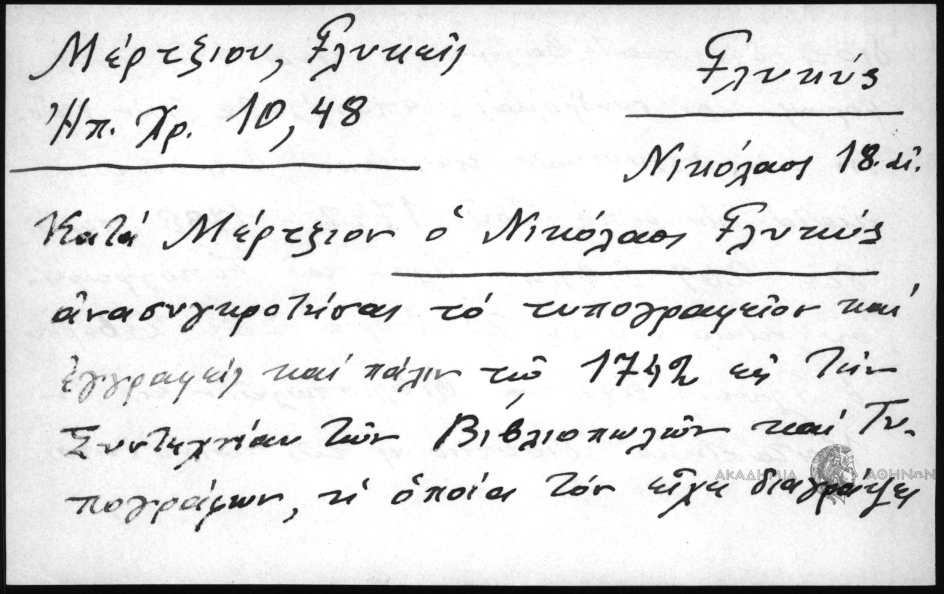 Μέρτζιου, Γλυκεῖς
Ἠπ. Χρ. 10, 48
Γλυκύς
Νικόλαος 18. αἰ.
Κατά Μέρτζιον ὁ Νικόλαος Γλυκύς
ἀνασυγκροτήσας τό τυπογραφεῖον καί
ἐγγραφείς καί πάλιν τῷ 1742 εἰς τήν
Συντεχνίαν τῶν Βιβλιοπωλῶν καί Τυ-
πογράφων, ἡ ὁποία τόν εἶχε διαγράψει
ΑΚΑΔΗΜΙΑ ΑΘΗΝΩΝ